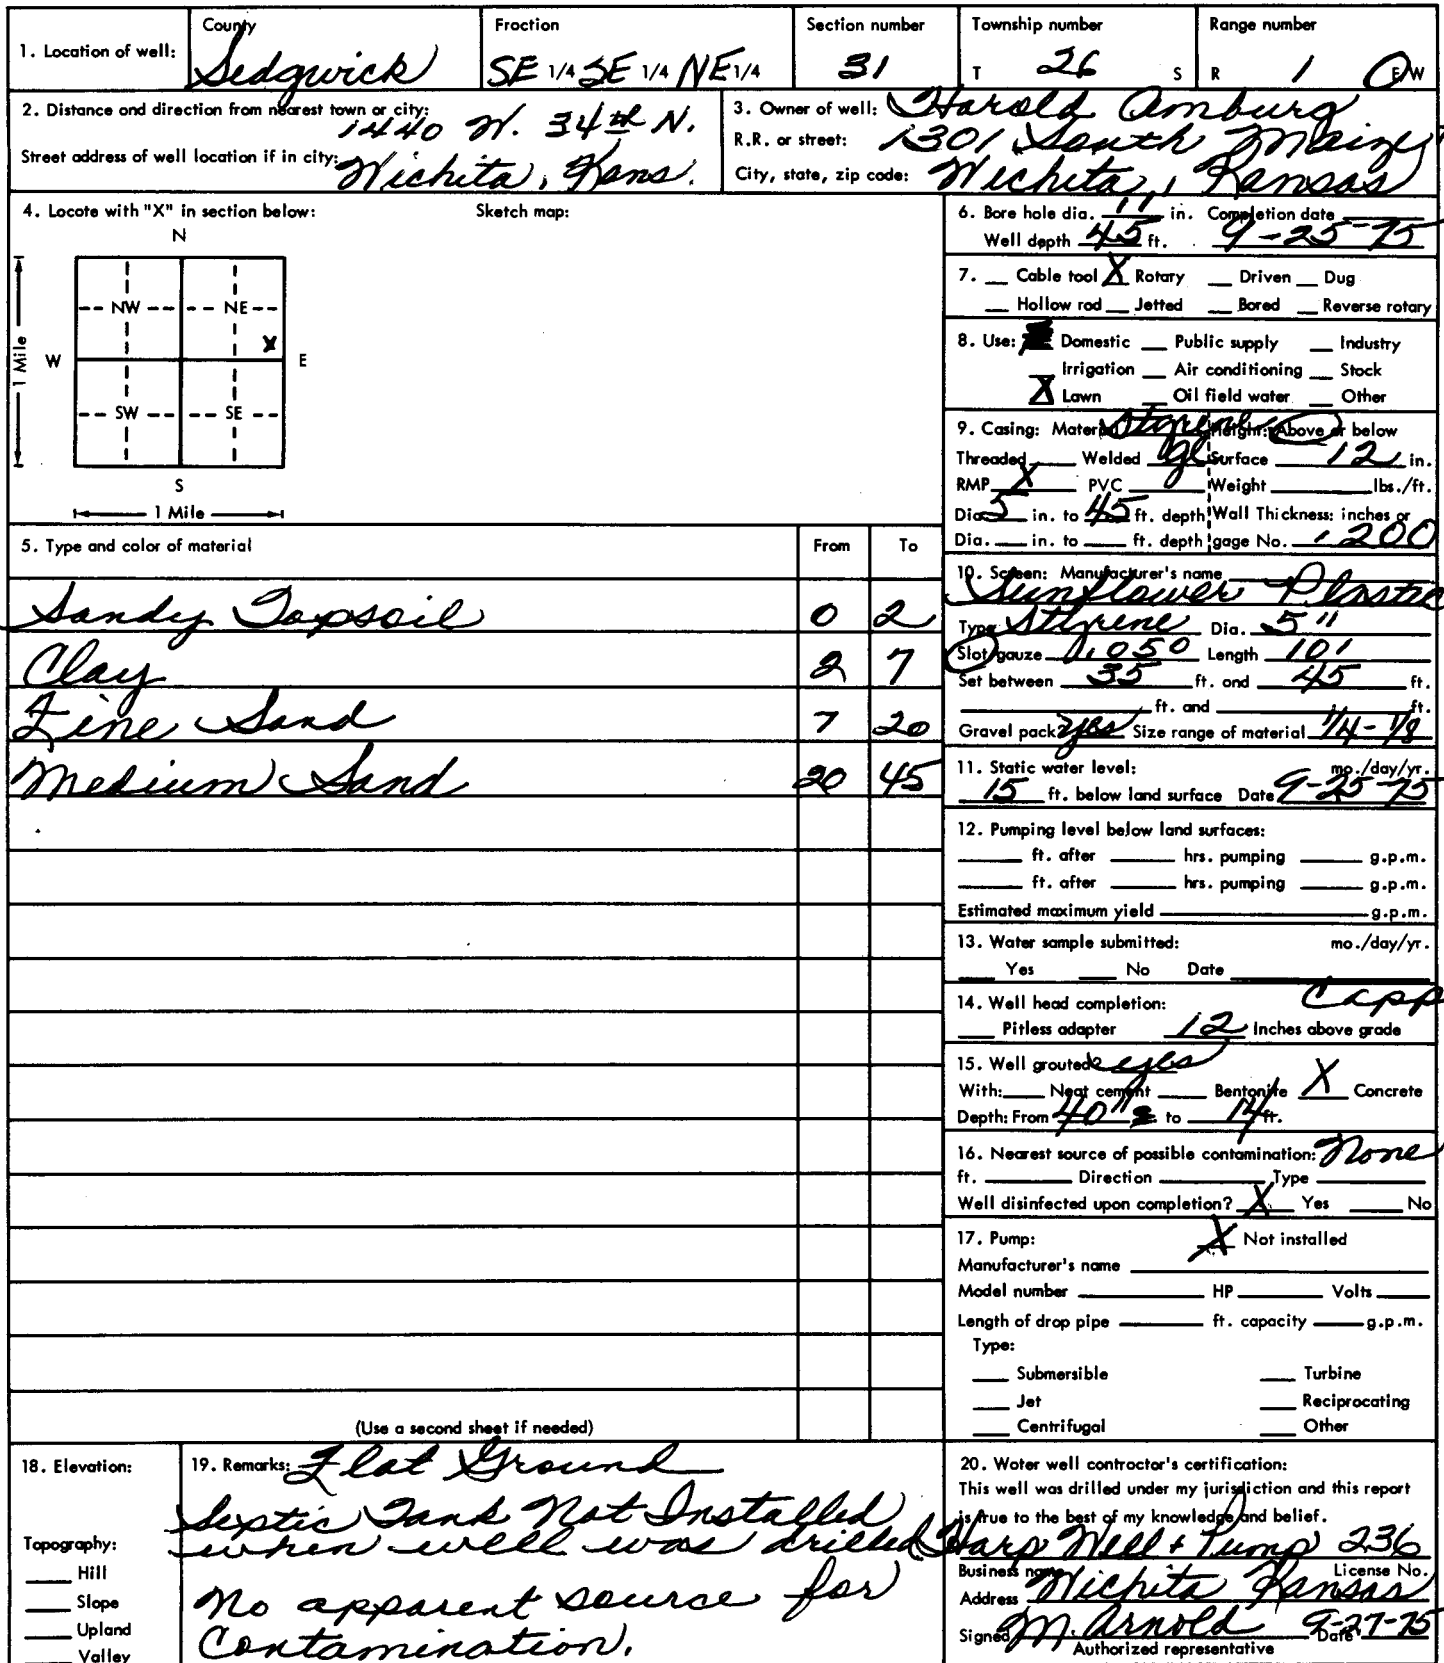 1. Location of well: County Sedgwick Fraction SE 1/4 SE 1/4 NE 1/4 Section number 31 Township number T 26 S Range number R 1 E/W
2. Distance and direction from nearest town or city: 1440 W. 34th N.
Street address of well location if in city: Wichita, Kans.
3. Owner of well: Harold Amburg
R.R. or street: 1301 South Maize
City, state, zip code: Wichita, Kansas
4. Locate with "X" in section below: Sketch map:
N
NW NE
X
W E
1 Mile
SW SE
S
1 Mile
5. Type and color of material From To
Sandy Topsoil 0 2
Clay 2 7
Fine Sand 7 20
Medium Sand 20 45
(Use a second sheet if needed)
6. Bore hole dia. 11 in. Completion date
Well depth 45 ft. 9-25-75
7. __ Cable tool X Rotary __ Driven __ Dug
__ Hollow rod __ Jetted __ Bored __ Reverse rotary
8. Use: Domestic __ Public supply __ Industry
__ Irrigation __ Air conditioning __ Stock
X Lawn __ Oil field water __ Other
9. Casing: Material Styrene Height: Above or below
Threaded __ Welded gl Surface 12 in.
RMP X PVC __ Weight __ lbs./ft.
Dia. 5 in. to 45 ft. depth Wall Thickness: inches or
Dia. __ in. to __ ft. depth gage No. .200
10. Screen: Manufacturer's name
Sunflower Plastic
Type Styrene Dia. 5"
Slot gauze .050 Length 10'
Set between 35 ft. and 45 ft.
__ ft. and __ ft.
Gravel pack? yes Size range of material 1/4-1/8
11. Static water level: mo./day/yr.
15 ft. below land surface Date 9-25-75
12. Pumping level below land surfaces:
__ ft. after __ hrs. pumping __ g.p.m.
__ ft. after __ hrs. pumping __ g.p.m.
Estimated maximum yield __ g.p.m.
13. Water sample submitted: mo./day/yr.
__ Yes __ No Date __
14. Well head completion: Capp
__ Pitless adapter 12 Inches above grade
15. Well grouted? yes
With: __ Neat cement __ Bentonite X Concrete
Depth: From 40" to 14 ft.
16. Nearest source of possible contamination: None
ft. __ Direction __ Type __
Well disinfected upon completion? X Yes __ No
17. Pump: X Not installed
Manufacturer's name __
Model number __ HP __ Volts __
Length of drop pipe __ ft. capacity __ g.p.m.
Type:
__ Submersible __ Turbine
__ Jet __ Reciprocating
__ Centrifugal __ Other
18. Elevation:
Topography:
__ Hill
__ Slope
__ Upland
__ Valley
19. Remarks: Flat Ground
Septic Tank Not Installed
when well was drilled
No apparent source for
Contamination.
20. Water well contractor's certification:
This well was drilled under my jurisdiction and this report
is true to the best of my knowledge and belief.
Harp Well + Pump 236
Business name License No.
Address Wichita Kansas
Signed M. Arnold Date 9-27-75
Authorized representative